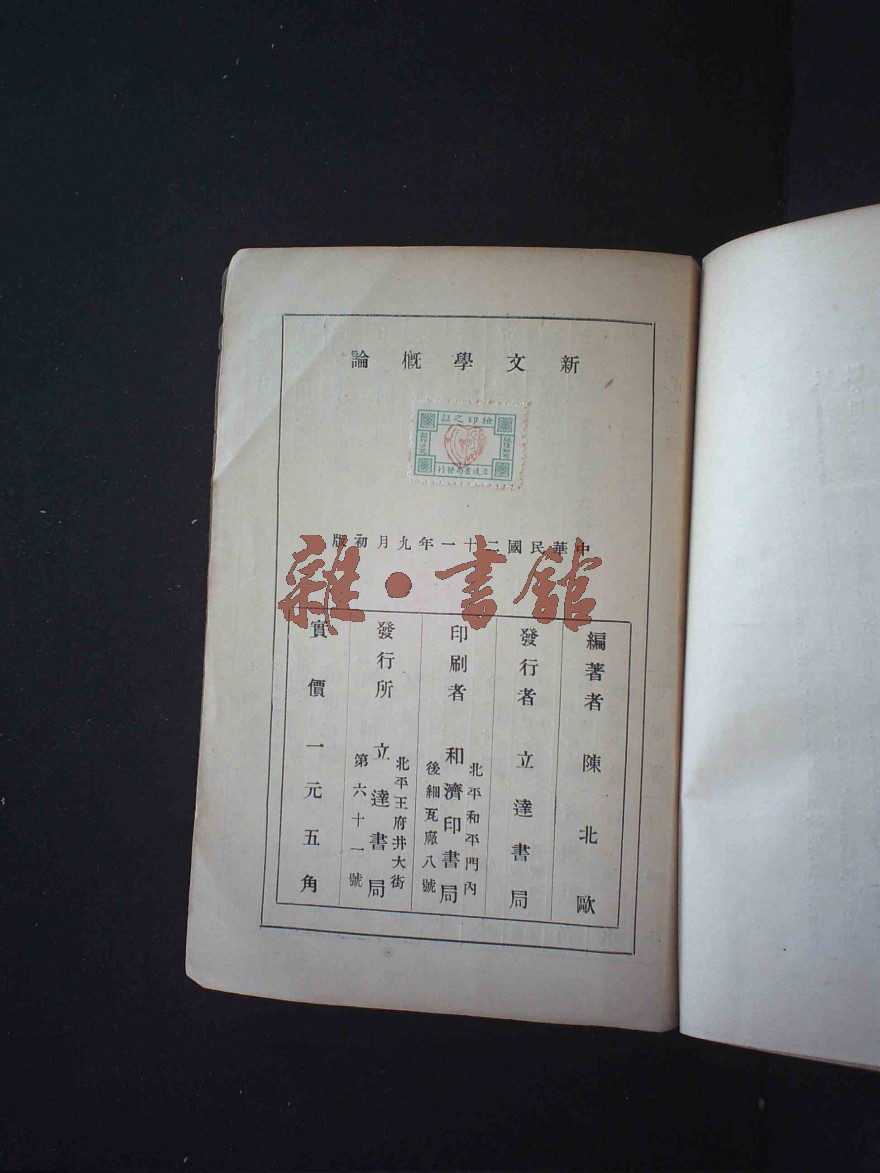 新文學概論
檢印之証
立達書局發行
中華民國二十一年九月初版
雜·書館
編著者 陳北歐
發行者 立達書局
印刷者 和濟印書局
北平和平門內
後細瓦廠八號
發行所 立達書局
北平王府井大街
第六十一號
實價一元五角